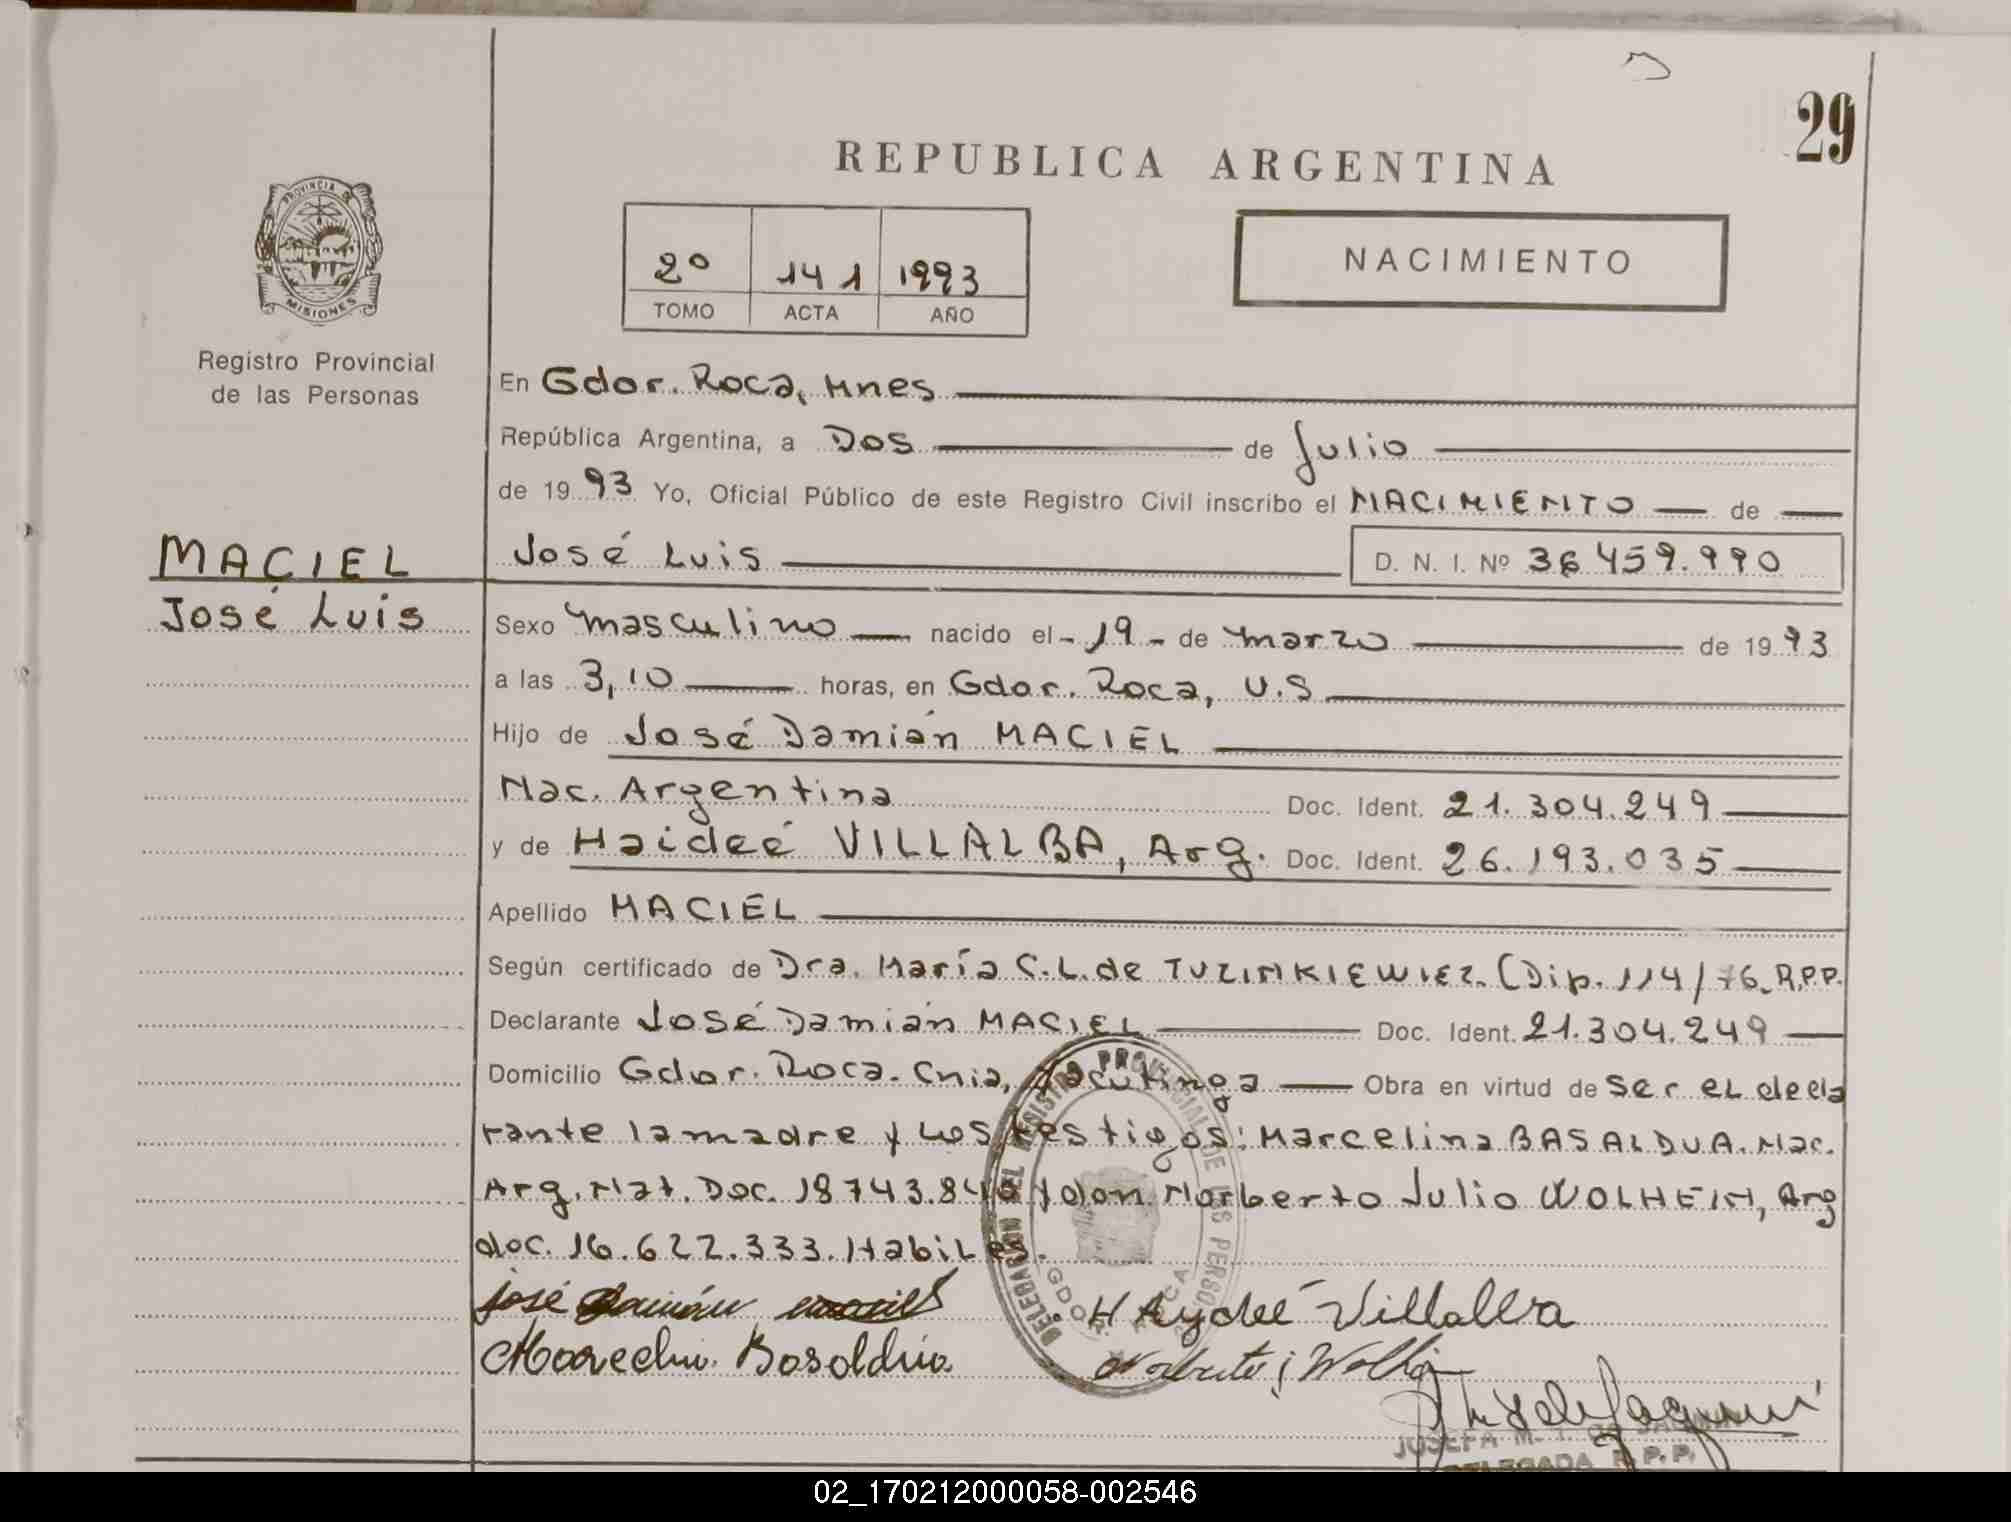 29
REPUBLICA ARGENTINA
PROVINCIA DE
MISIONES
2º 141 1993
TOMO ACTA AÑO
NACIMIENTO
Registro Provincial
de las Personas
En Gdor. Roca, Mnes
República Argentina, a Dos de Julio
de 1993 Yo, Oficial Público de este Registro Civil inscribo el NACIMIENTO de
MACIEL
José Luis D. N. I. Nº 36 459.990
José Luis
Sexo Masculino nacido el - 19 - de Marzo de 1993
a las 3,10 horas, en Gdor. Roca, U.S
Hijo de José Damián MACIEL
Nac. Argentina Doc. Ident. 21.304.249
y de Haideé VILLALBA, Arg. Doc. Ident. 26.193.035
Apellido MACIEL
Según certificado de Dra. María C.L. de TUZINKIEWIEZ. (Dip. 114/76_R.P.P.
Declarante José Damián MACIEL Doc. Ident. 21.304.249
Domicilio Gdor. Roca. Cnia, Yacutinga Obra en virtud de ser el decla
rante la madre y los testigos: Marcelina BASALDUA. Nac.
Arg. Nat. Doc. 18743.846 y don Norberto Julio WOLHEIN, Arg
doc. 16.622.333. Habiles.
DELEGACION DEL REGISTRO PROVINCIAL DE LAS PERSONAS
GDOR. ROCA
josé Damián maciel HAydeé Villalba
Marcelina Basaldúa Norberto j Wolhein
JOSEFA M. T. DE JAQUIN
DELEGADA R.P.P.
02_170212000058-002546